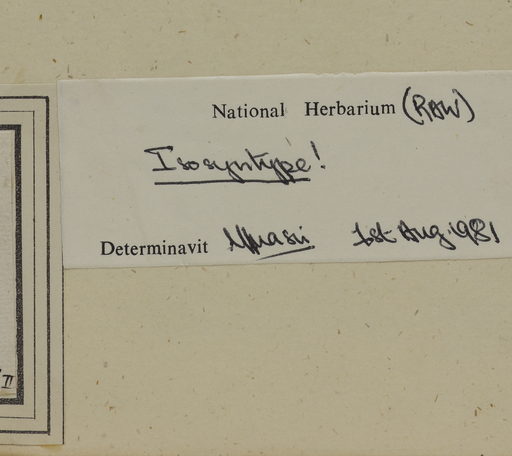 National Herbarium (RAW)
Isosyntype!
Determinavit Y Nasir 1st Aug. 1981
II